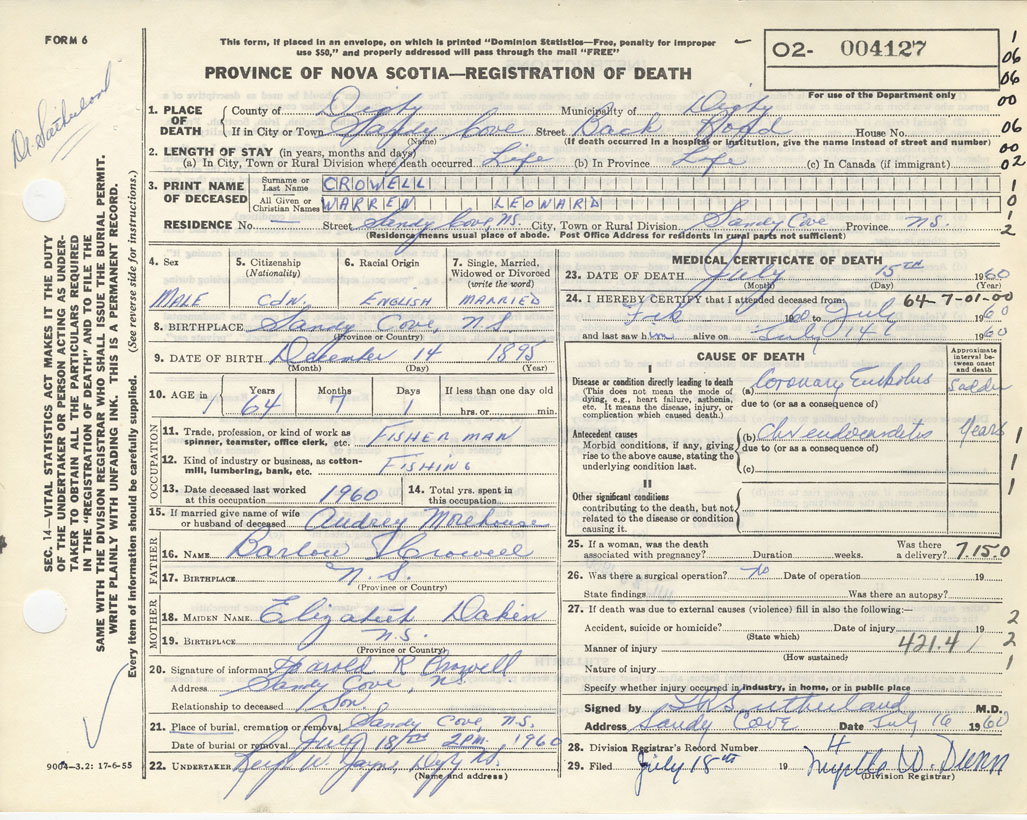 FORM 6
This form, if placed in an envelope, on which is printed "Dominion Statistics—Free, penalty for improper
use $50," and properly addressed will pass through the mail "FREE"
PROVINCE OF NOVA SCOTIA—REGISTRATION OF DEATH
O2- 004127
For use of the Department only
1
06
06
00
06
00
02
1
0
1
2
Dr. Sutherland
SEC. 14—VITAL STATISTICS ACT MAKES IT THE DUTY
OF THE UNDERTAKER OR PERSON ACTING AS UNDER-
TAKER TO OBTAIN ALL THE PARTICULARS REQUIRED
IN THE "REGISTRATION OF DEATH" AND TO FILE THE
SAME WITH THE DIVISION REGISTRAR WHO SHALL ISSUE THE BURIAL PERMIT.
WRITE PLAINLY WITH UNFADING INK. THIS IS A PERMANENT RECORD.
Every item of information should be carefully supplied. (See reverse side for instructions.)
1. PLACE OF DEATH County of Digby Municipality of Digby
If in City or Town Sandy Cove Street Back Road House No.
(Name) (If death occurred in a hospital or institution, give the name instead of street and number)
2. LENGTH OF STAY (in years, months and days)
(a) In City, Town or Rural Division where death occurred Life (b) In Province Life (c) In Canada (if immigrant)
3. PRINT NAME OF DECEASED Surname or Last Name CROWELL
All Given or Christian Names WARREN LEONARD
RESIDENCE No. — Street Sandy Cove, N.S. City, Town or Rural Division Sandy Cove Province N.S.
(Residence means usual place of abode. Post Office Address for residents in rural parts not sufficient)
4. Sex MALE
5. Citizenship (Nationality) CDN.
6. Racial Origin ENGLISH
7. Single, Married, Widowed or Divorced (write the word) MARRIED
8. BIRTHPLACE Sandy Cove, N.S
(Province or Country)
9. DATE OF BIRTH December 14 1895
(Month) (Day) (Year)
10. AGE in Years 64 Months 7 Days 1 If less than one day old hrs. or min.
OCCUPATION
11. Trade, profession, or kind of work as spinner, teamster, office clerk, etc. FISHERMAN
12. Kind of industry or business, as cotton-mill, lumbering, bank, etc. FISHING
13. Date deceased last worked at this occupation 1960
14. Total yrs. spent in this occupation
15. If married give name of wife or husband of deceased Audrey Morehouse
FATHER
16. NAME Barlow Crowell
17. BIRTHPLACE N.S.
(Province or Country)
MOTHER
18. MAIDEN NAME Elizabeth Dakin
19. BIRTHPLACE N.S.
(Province or Country)
20. Signature of informant Harold R Crowell
Address Sandy Cove, N.S.
Relationship to deceased Son
21. Place of burial, cremation or removal Sandy Cove, N.S.
Date of burial or removal July 18th 2PM. 1960
22. UNDERTAKER W. Jayne, Digby N.S.
(Name and address)
9004—3.2: 17-6-55
MEDICAL CERTIFICATE OF DEATH
23. DATE OF DEATH July 15TH 1960
(Month) (Day) (Year)
24. I HEREBY CERTIFY that I attended deceased from: 64-7-01-00
Feb 1960 to July 1960
and last saw him alive on July 14th 1960
CAUSE OF DEATH
Approximate interval between onset and death
I
Disease or condition directly leading to death
(This does not mean the mode of dying, e.g., heart failure, asthenia, etc. It means the disease, injury, or complication which caused death.)
(a) Coronary Embolus Sudden
due to (or as a consequence of)
Antecedent causes
Morbid conditions, if any, giving rise to the above cause, stating the underlying condition last.
(b) Chr endocarditis Years
due to (or as a consequence of)
(c)
II
Other significant conditions
contributing to the death, but not related to the disease or condition causing it.
1
1
1
25. If a woman, was the death associated with pregnancy? Duration weeks. Was there a delivery? 7.15.0
26. Was there a surgical operation? No Date of operation 19
State findings Was there an autopsy?
27. If death was due to external causes (violence) fill in also the following:—
Accident, suicide or homicide? Date of injury 19
(State which)
Manner of injury 421.4
(How sustained)
Nature of injury
2
2
1
Specify whether injury occurred in industry, in home, or in public place
Signed by Sutherland M.D.
Address Sandy Cove Date July 16 1960
28. Division Registrar's Record Number 4
29. Filed July 18th 19 Myrtle W. Dunn
(Division Registrar)